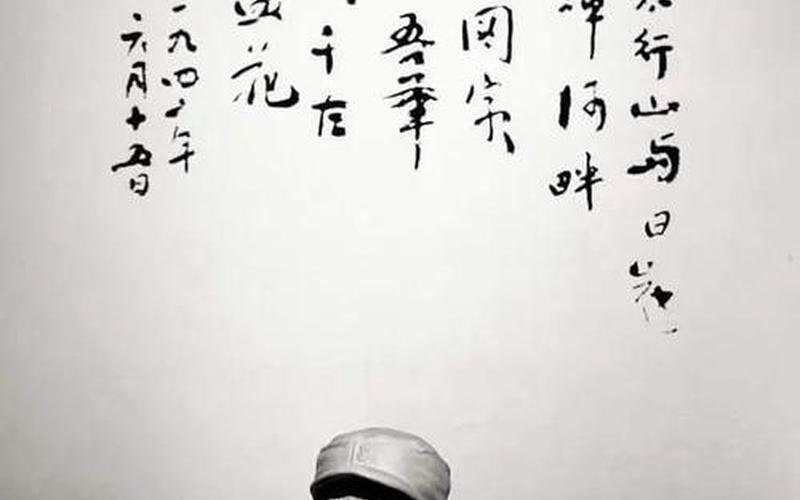 太行山与日
漳河畔
国家
吾華
千古
血花
一九四二年
六月十五日